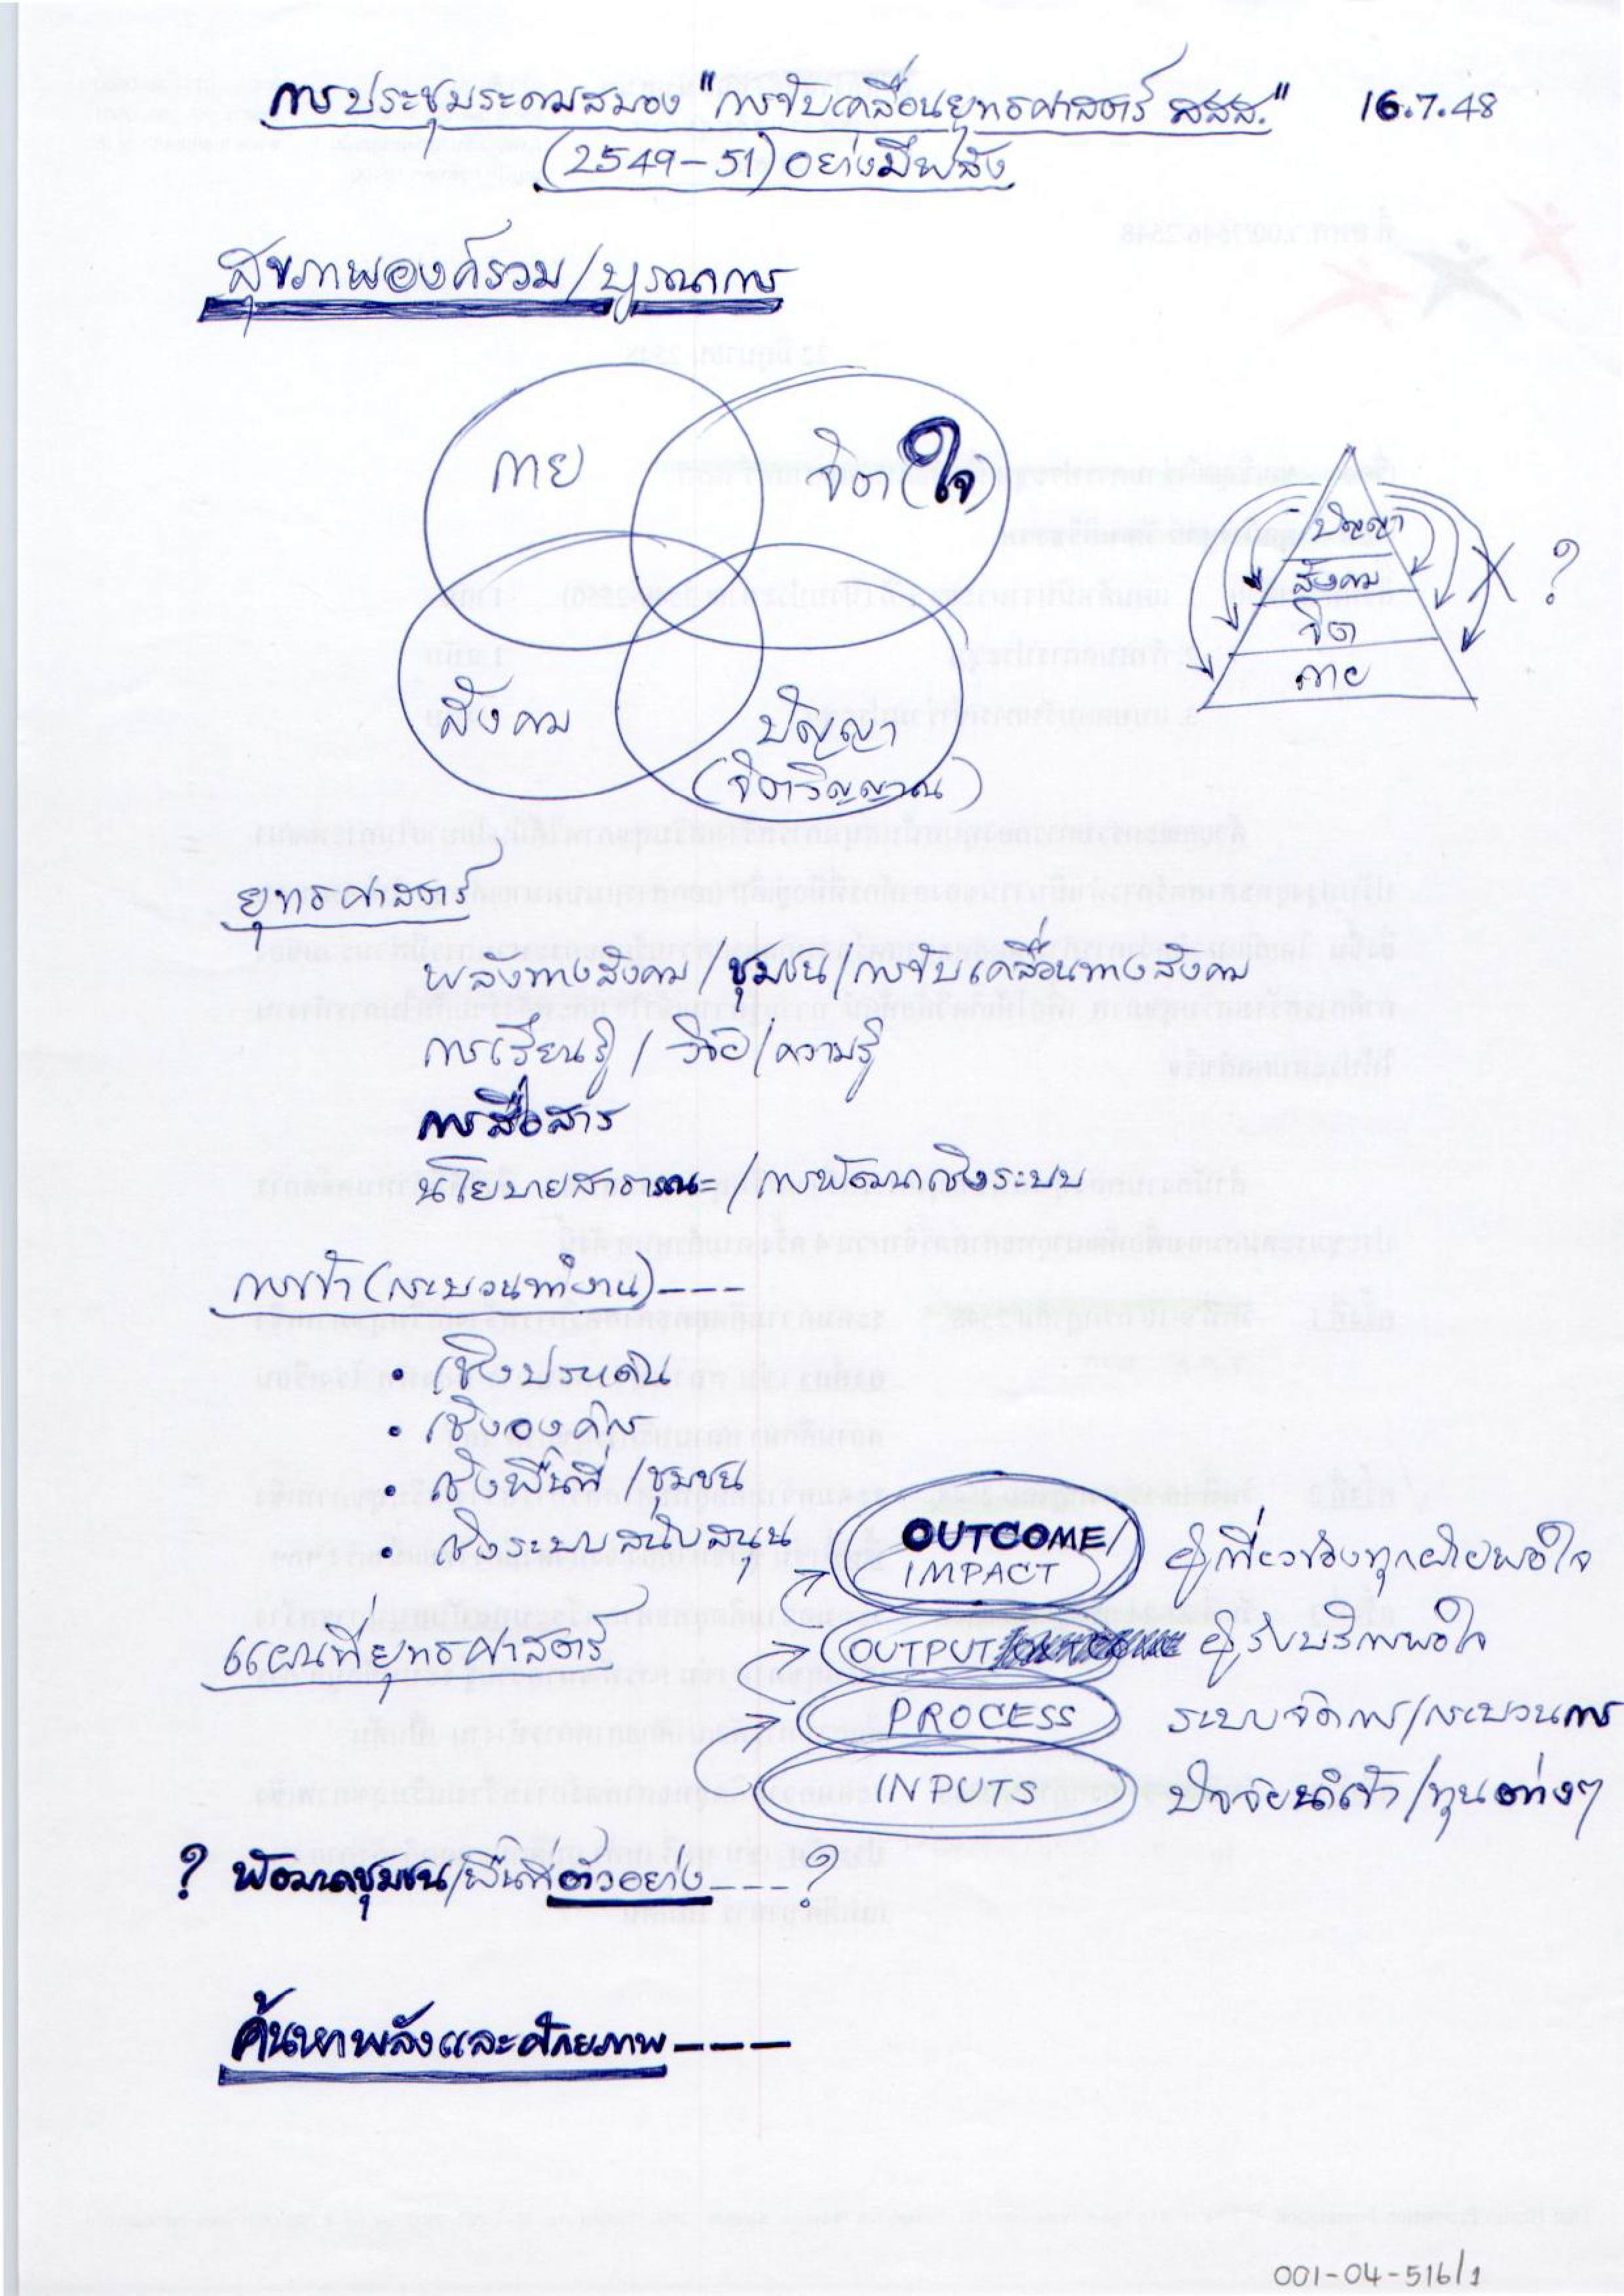 การประชุมระดมสมอง "การขับเคลื่อนยุทธศาสตร์ สสส." 16.7.48
(2549-51) อย่างมีพลัง
สุขภาพองค์รวม/บูรณาการ
กาย
จิต (ใจ)
สังคม
ปัญญา
(จิตวิญญาณ)
ปัญญา
สังคม
จิต
กาย
?
ยุทธศาสตร์
พลังทางสังคม/ชุมชน/การขับเคลื่อนทางสังคม
การเรียนรู้/วิจัย/ความรู้
การสื่อสาร
นโยบายสาธารณะ/การพัฒนาเชิงระบบ
(กระบวนทำงาน)---
• เชิงประเด็น
• เชิงองค์กร
• เชิงพื้นที่/ชุมชน
• เชิงระบบสนับสนุน
แผนที่ยุทธศาสตร์
OUTCOME/
IMPACT
ผู้เกี่ยวข้องทุกฝ่ายพอใจ
OUTPUT
ผู้รับบริการพอใจ
PROCESS
ระบบจัดการ/กระบวนการ
INPUTS
ปัจจัยนำเข้า/ทุนต่างๆ
? พัฒนาชุมชน/พื้นที่ตัวอย่าง---?
ค้นหาพลังและศักยภาพ----
001-04-516/1